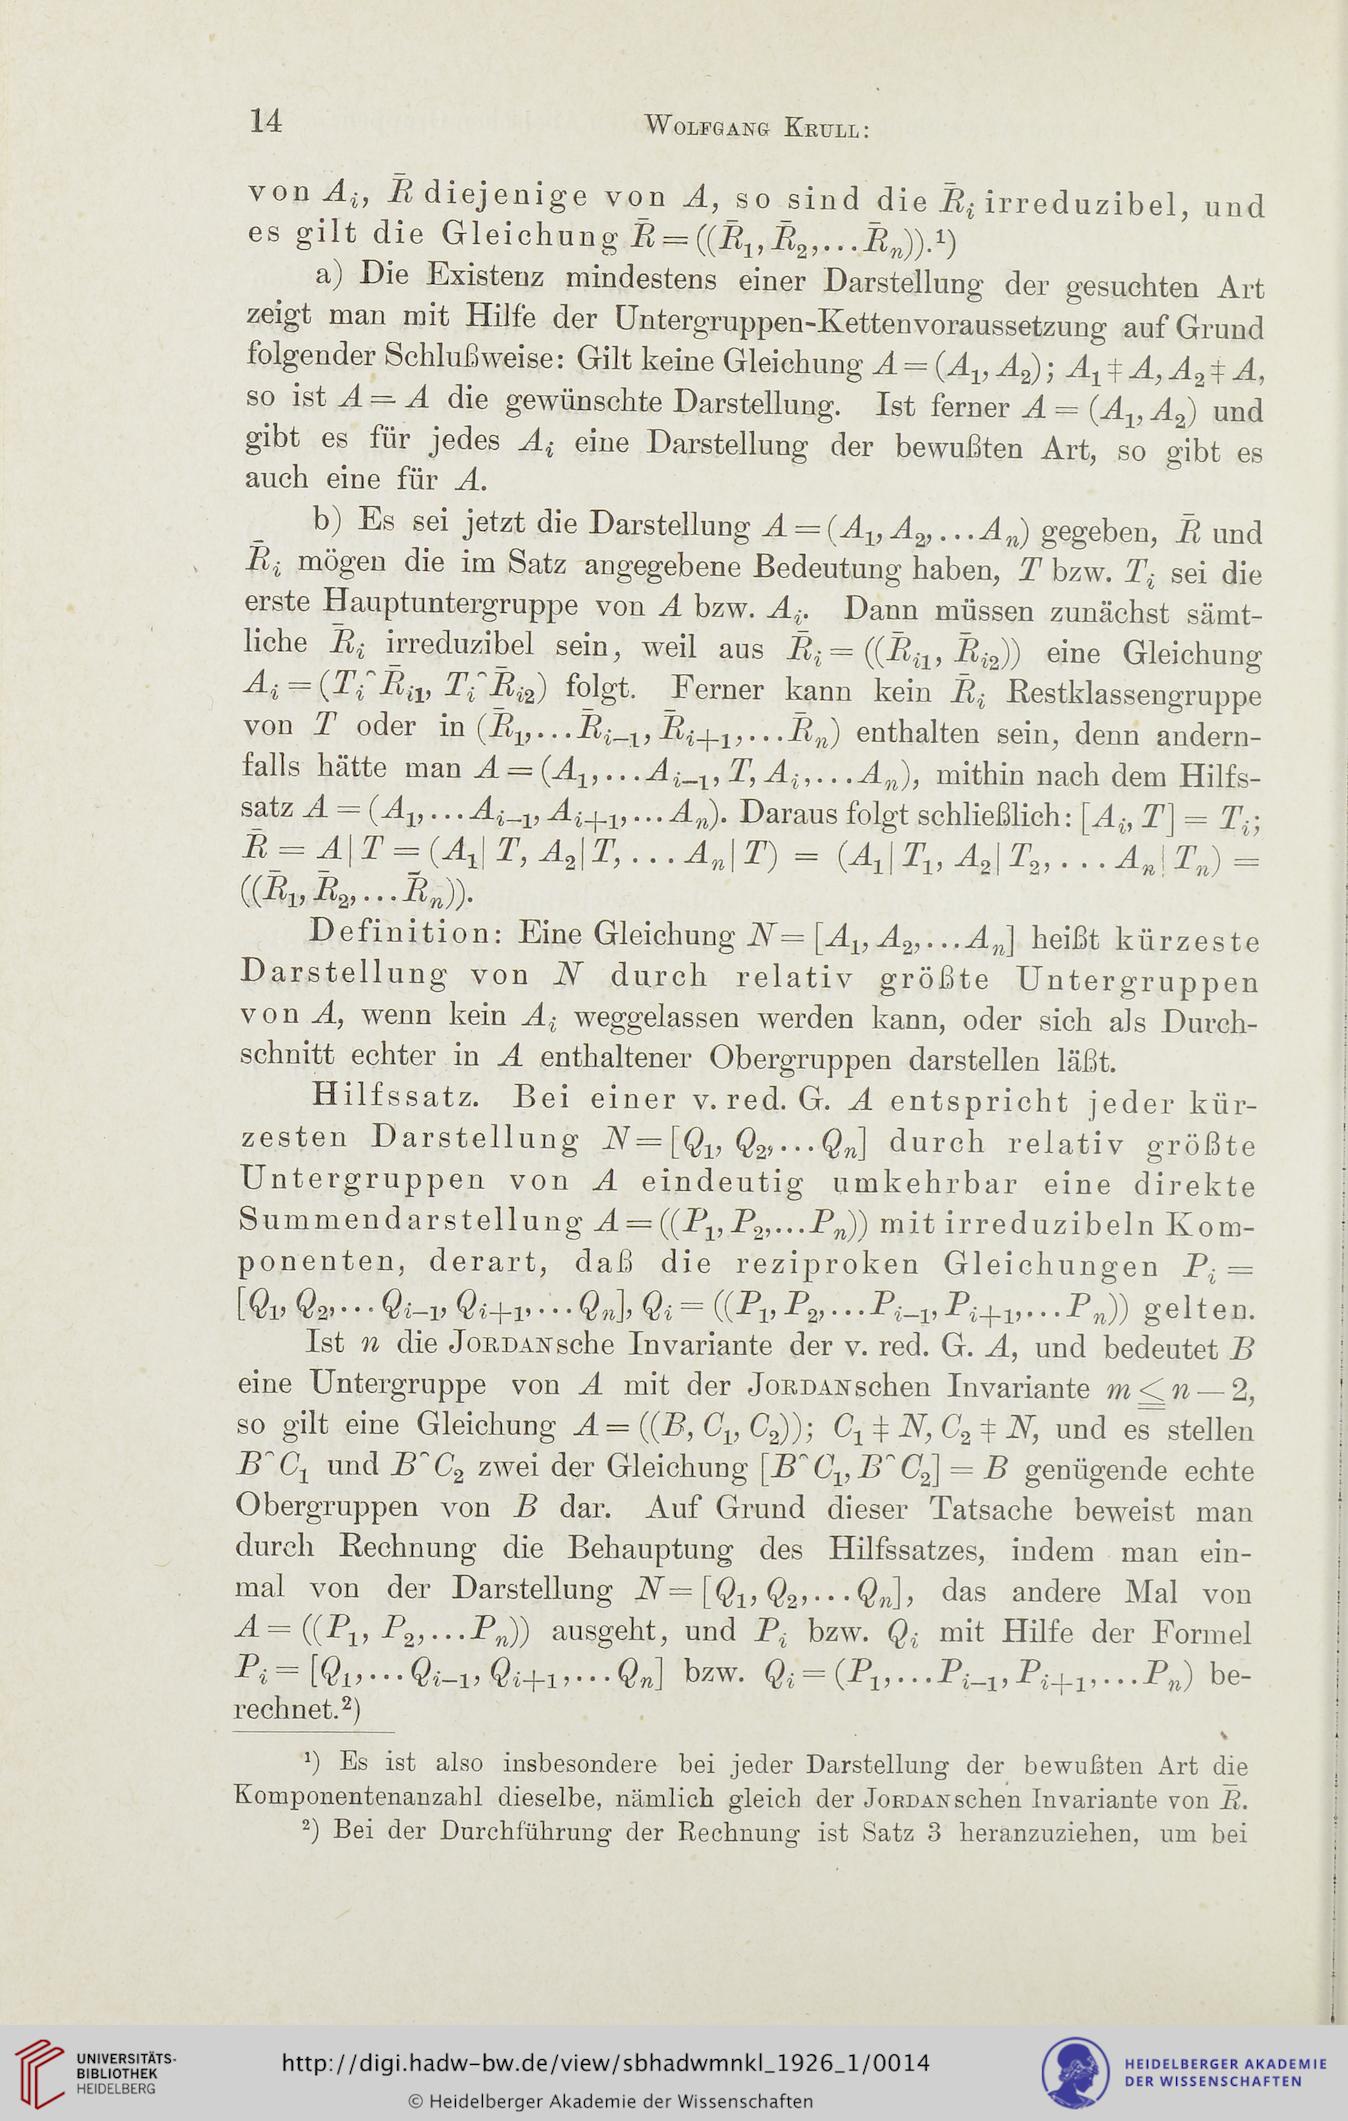 14
WOLFGANG KRULL:
von A_i, R̄ diejenige von A, so sind die R̄_i irreduzibel, und
es gilt die Gleichung R̄ = ((R̄₁, R̄₂, ... R̄_n)).¹)
a) Die Existenz mindestens einer Darstellung der gesuchten Art
zeigt man mit Hilfe der Untergruppen-Kettenvoraussetzung auf Grund
folgender Schlußweise: Gilt keine Gleichung A = (A₁, A₂); A₁ ǂ A, A₂ ǂ A,
so ist A = A die gewünschte Darstellung. Ist ferner A = (A₁, A₂) und
gibt es für jedes A_i eine Darstellung der bewußten Art, so gibt es
auch eine für A.
b) Es sei jetzt die Darstellung A = (A₁, A₂, ... A_n) gegeben, R̄ und
R̄_i mögen die im Satz angegebene Bedeutung haben, T bzw. T_i sei die
erste Hauptuntergruppe von A bzw. A_i. Dann müssen zunächst sämt-
liche R̄_i irreduzibel sein, weil aus R̄_i = ((R̄_i1, R̄_i2)) eine Gleichung
A_i = (T_i⌢R̄_i1, T_i⌢R̄_i2) folgt. Ferner kann kein R̄_i Restklassengruppe
von T oder in (R̄₁, ... R̄_i–1, R̄_i+1, ... R̄_n) enthalten sein, denn andern-
falls hätte man A = (A₁, ... A_i–1, T, A_i, ... A_n), mithin nach dem Hilfs-
satz A = (A₁, ... A_i–1, A_i+1, ... A_n). Daraus folgt schließlich: [A_i, T] = T_i;
R̄ = A|T = (A₁|T, A₂|T, ... A_n|T) = (A₁|T₁, A₂|T₂, ... A_n|T_n) =
((R̄₁, R̄₂, ... R̄_n)).
Definition: Eine Gleichung N = [A₁, A₂, ... A_n] heißt kürzeste
Darstellung von N durch relativ größte Untergruppen
von A, wenn kein A_i weggelassen werden kann, oder sich als Durch-
schnitt echter in A enthaltener Obergruppen darstellen läßt.
Hilfssatz. Bei einer v. red. G. A entspricht jeder kür-
zesten Darstellung N = [Q₁, Q₂, ... Q_n] durch relativ größte
Untergruppen von A eindeutig umkehrbar eine direkte
Summendarstellung A = ((P₁, P₂, ... P_n)) mit irreduzibeln Kom-
ponenten, derart, daß die reziproken Gleichungen P_i =
[Q₁, Q₂, ... Q_i–1, Q_i+1, ... Q_n], Q_i = ((P₁, P₂, ... P_i–1, P_i+1, ... P_n)) gelten.
Ist n die JORDANsche Invariante der v. red. G. A, und bedeutet B
eine Untergruppe von A mit der JORDANschen Invariante m ≦ n — 2,
so gilt eine Gleichung A = ((B, C₁, C₂)); C₁ ǂ N, C₂ ǂ N, und es stellen
B⌢C₁ und B⌢C₂ zwei der Gleichung [B⌢C₁, B⌢C₂] = B genügende echte
Obergruppen von B dar. Auf Grund dieser Tatsache beweist man
durch Rechnung die Behauptung des Hilfssatzes, indem man ein-
mal von der Darstellung N = [Q₁, Q₂, ... Q_n], das andere Mal von
A = ((P₁, P₂, ... P_n)) ausgeht, und P_i bzw. Q_i mit Hilfe der Formel
P_i = [Q₁, ... Q_i–1, Q_i+1, ... Q_n] bzw. Q_i = (P₁, ... P_i–1, P_i+1, ... P_n) be-
rechnet.²)
¹) Es ist also insbesondere bei jeder Darstellung der bewußten Art die
Komponentenanzahl dieselbe, nämlich gleich der JORDANschen Invariante von R̄.
²) Bei der Durchführung der Rechnung ist Satz 3 heranzuziehen, um bei
UNIVERSITÄTS-
BIBLIOTHEK
HEIDELBERG
http://digi.hadw-bw.de/view/sbhadwmnkl_1926_1/0014
© Heidelberger Akademie der Wissenschaften
HEIDELBERGER AKADEMIE
DER WISSENSCHAFTEN